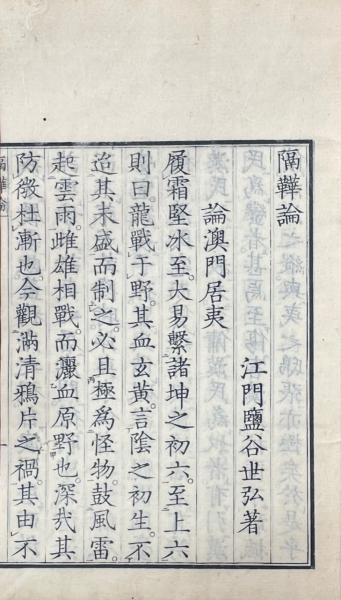 隔鞾論
江門鹽谷世弘著
論澳門居夷
履霜堅冰至。大易繫諸坤之初六。至上六
則曰。龍戰于野。其血玄黃。言陰之初生。不
迨其未盛而制之。必且極爲怪物。鼓風雷。
起雲雨。雌雄相戰。而灑血原野也。深哉其
防微杜漸也今觀滿清鴉片之禍。其由不
隔鞾論